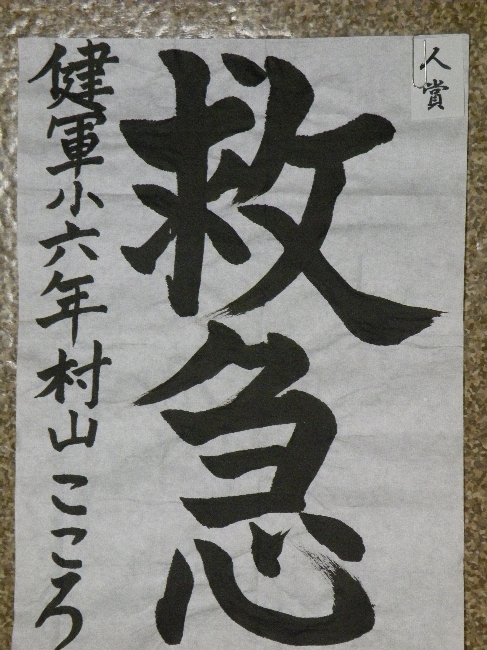 入賞
救急
健軍小六年村山こころ